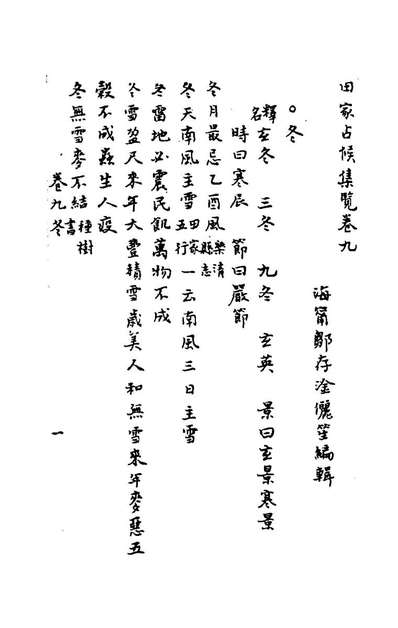 田家占候集覽卷九
海甯鄒存淦儷笙編輯
○冬
釋名玄冬　三冬　九冬　玄英　景曰玄景寒景
時曰寒辰　節曰嚴節
冬月最忌乙酉風樂清縣志
冬天南風主雪田家五行一云南風三日主雪
冬雷地必震民飢萬物不成
冬雪盈尺來年大豐積雪歲美人和無雪來年麥惡五
穀不成蟲生人疫
冬無雪麥不結種樹書
卷九冬
一